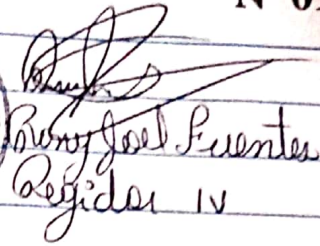 Nº 0
Rony Joel Fuentes
Regidor IV